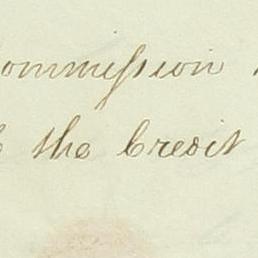 Commission
the Credit